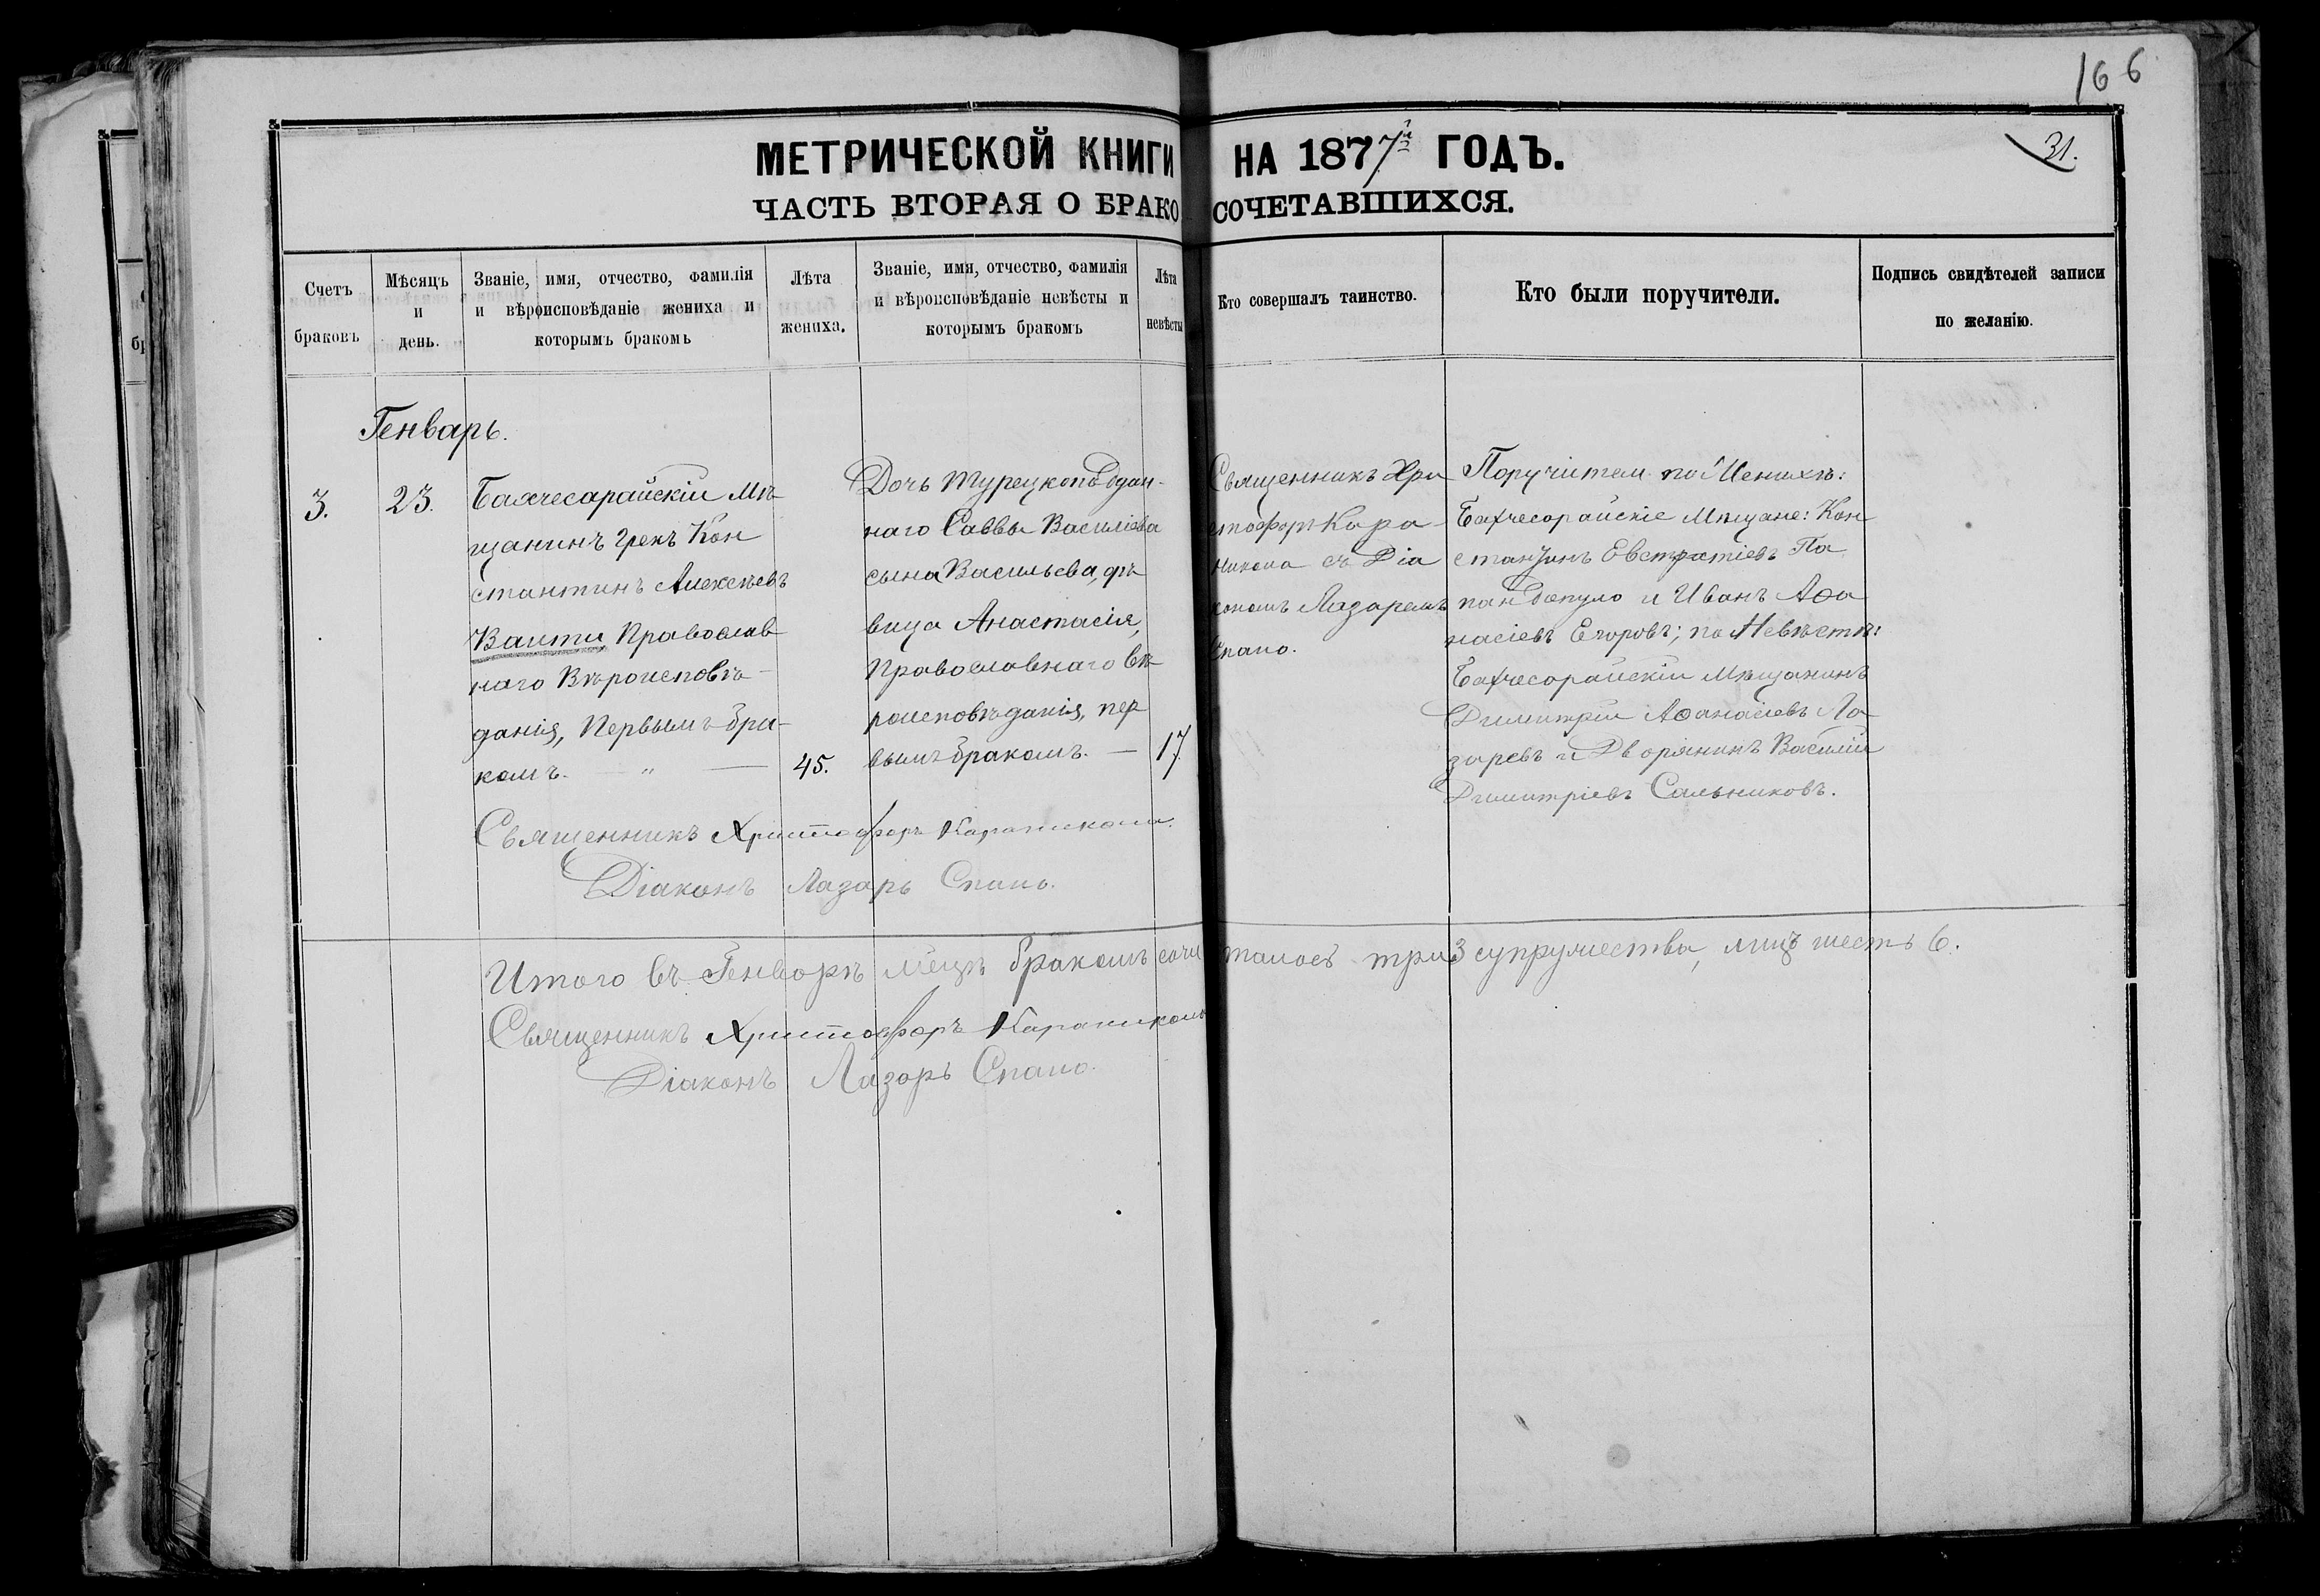 166
МЕТРИЧЕСКОЙ КНИГИ НА 1877й ГОДЪ.
31.
ЧАСТЬ ВТОРАЯ О БРАКОСОЧЕТАВШИХСЯ.
Счетъ
браковъ
Мѣсяцъ
и
день.
Званіе, имя, отчество, фамилія
и вѣроисповѣданіе жениха и
которымъ бракомъ
Лѣта
жениха.
Званіе, имя, отчество, фамилія
и вѣроисповѣданіе невѣсты и
которымъ бракомъ
Лѣта
невѣсты
Кто совершалъ таинство.
Кто были поручители.
Подпись свидѣтелей записи
по желанію.
Генварь.
3.
23.
Бахчесарайскій Мѣ-
щанинъ Грекъ Кон
стантинъ Алексѣевъ
Валти Православ
наго Вѣроисповѣ-
данія, Первымъ бра-
комъ. — " —
45.
Дочь Турецкоподдан-
наго Саввы Василіева
сына Васильева, дѣ
вица Анастасія,
Православнаго вѣ
роисповѣданія, пер
вымъ бракомъ. —
17.
Священникъ Хри
стофоръ Кара-
никола съ Діа
кономъ Лазаремъ
Спано.
Поручители по Женихѣ:
Бахчесарайскіе Мѣщане: Кон
стантинъ Евстратіевъ Па
пандопуло и Иванъ Аѳа
насіевъ Егоровъ; по Невѣстѣ:
Бахчесарайскій Мѣщанинъ
Димитрій Аѳанасіевъ Ла
заревъ и Дворянинъ Василій
Димитріевъ Сальниковъ.
Священникъ Христофоръ Караникола.
Діаконъ Лазарь Спано.
Итого въ Генварѣ м͠цѣ бракомъ сочеталось три 3 супружества, лицъ шесть 6.
Священникъ Христофоръ Караникола
Діаконъ Лазарь Спано.